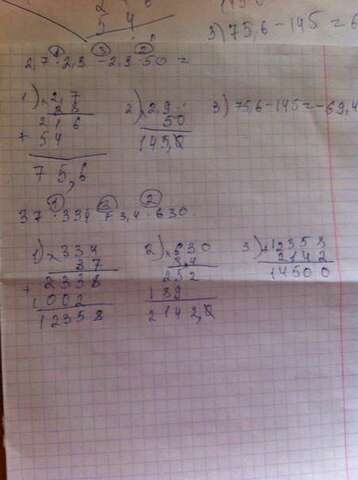 54
3) 75,6 - 145 = 6
① ③ ②
2,7 · 2,8 - 2,9 · 50 =
1) × 2,7
28
216
+ 54
75,6
2) × 2,9
50
145,0
3) 75,6 - 145 = -69,4
① ③ ②
37 · 334 + 3,4 · 630
1) × 334
37
+ 2338
1002
12358
2) × 630
3,4
252
189
2142,0
3) + 12358
2142
14500